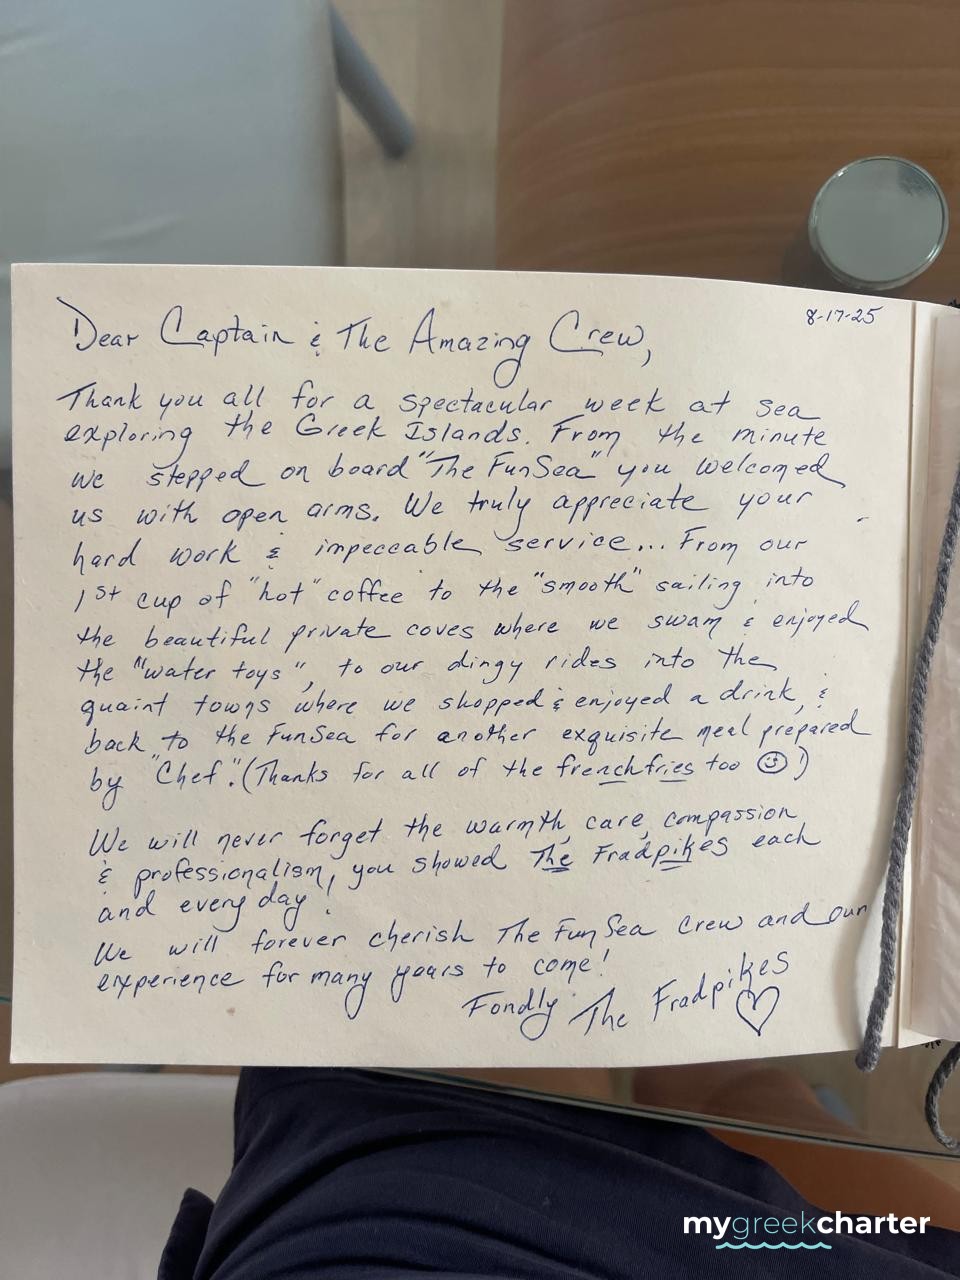 8-17-25
Dear Captain & The Amazing Crew,
Thank you all for a spectacular week at sea
exploring the Greek Islands. From the minute
we stepped on board "The FunSea" you welcomed
us with open arms. We truly appreciate your
hard work & impeccable service... From our
1st cup of "hot" coffee to the "smooth" sailing into
the beautiful private coves where we swam & enjoyed
the "water toys", to our dingy rides into the
quaint towns where we shopped & enjoyed a drink, &
back to the FunSea for another exquisite meal prepared
by "Chef". (Thanks for all of the french fries too ☺!)
We will never forget the warmth, care, compassion
& professionalism, you showed The Fradpikes each
and every day!
We will forever cherish The FunSea Crew and our
experience for many years to come!
Fondly The Fradpikes
♡
mygreekcharter